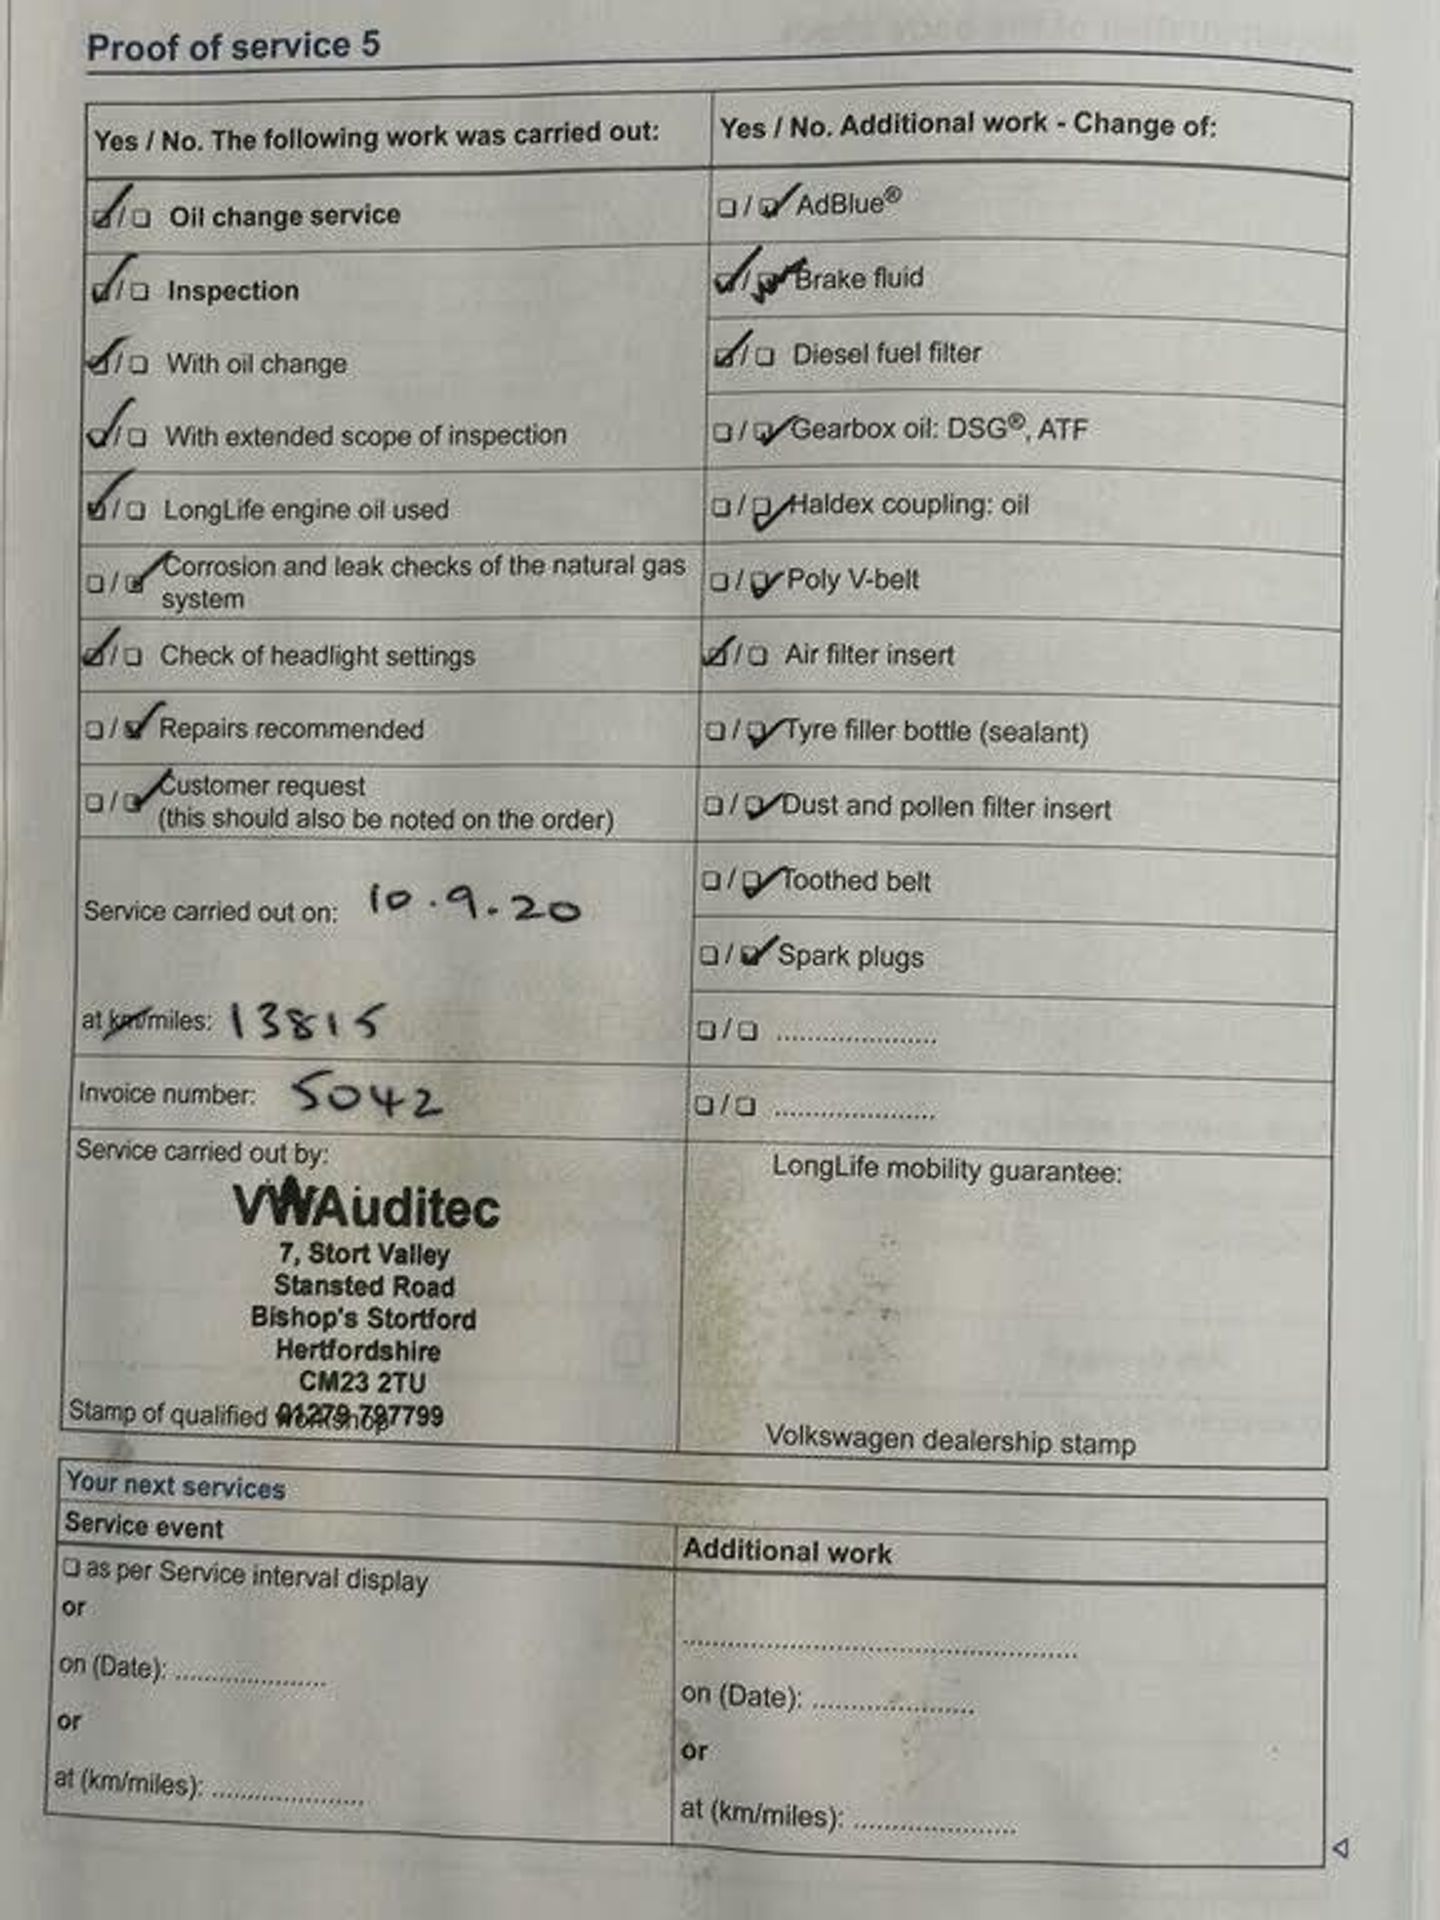 Proof of service 5
Yes / No. The following work was carried out:
Oil change service
Inspection
With oil change
With extended scope of inspection
LongLife engine oil used
Corrosion and leak checks of the natural gas
system
Check of headlight settings
Repairs recommended
Customer request
(this should also be noted on the order)
Service carried out on: 10.9.20
at km/miles: 13815
Invoice number: 5042
Service carried out by:
VWAuditec
7, Stort Valley
Stansted Road
Bishop's Stortford
Hertfordshire
CM23 2TU
01279 797799
Stamp of qualified workshop
Yes / No. Additional work - Change of:
AdBlue®
Brake fluid
Diesel fuel filter
Gearbox oil: DSG®, ATF
Haldex coupling: oil
Poly V-belt
Air filter insert
Tyre filler bottle (sealant)
Dust and pollen filter insert
Toothed belt
Spark plugs
LongLife mobility guarantee:
Volkswagen dealership stamp
Your next services
Service event
as per Service interval display
or
on (Date): ....................
or
at (km/miles): ....................
Additional work
on (Date): ....................
or
at (km/miles): ....................